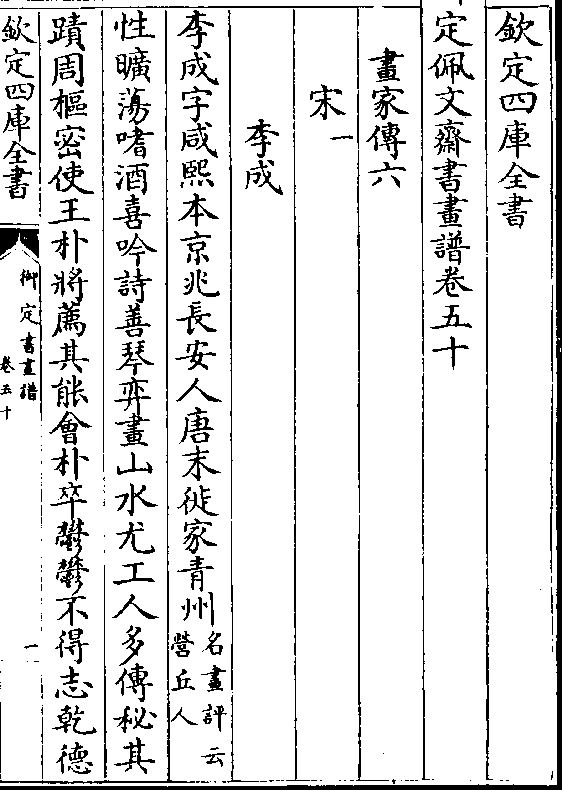 欽定四庫全書
定佩文齋書畫譜卷五十
畫家傳六
宋一
李成
李成字咸熙本京兆長安人唐末徙家青州名畫評云營丘人
性曠蕩嗜酒喜吟詩善琴弈畫山水尤工人多傳秘其
蹟周樞密使王朴將薦其能會朴卒鬱鬱不得志乾德
欽定四庫全書
御定書畫譜
卷五十
一